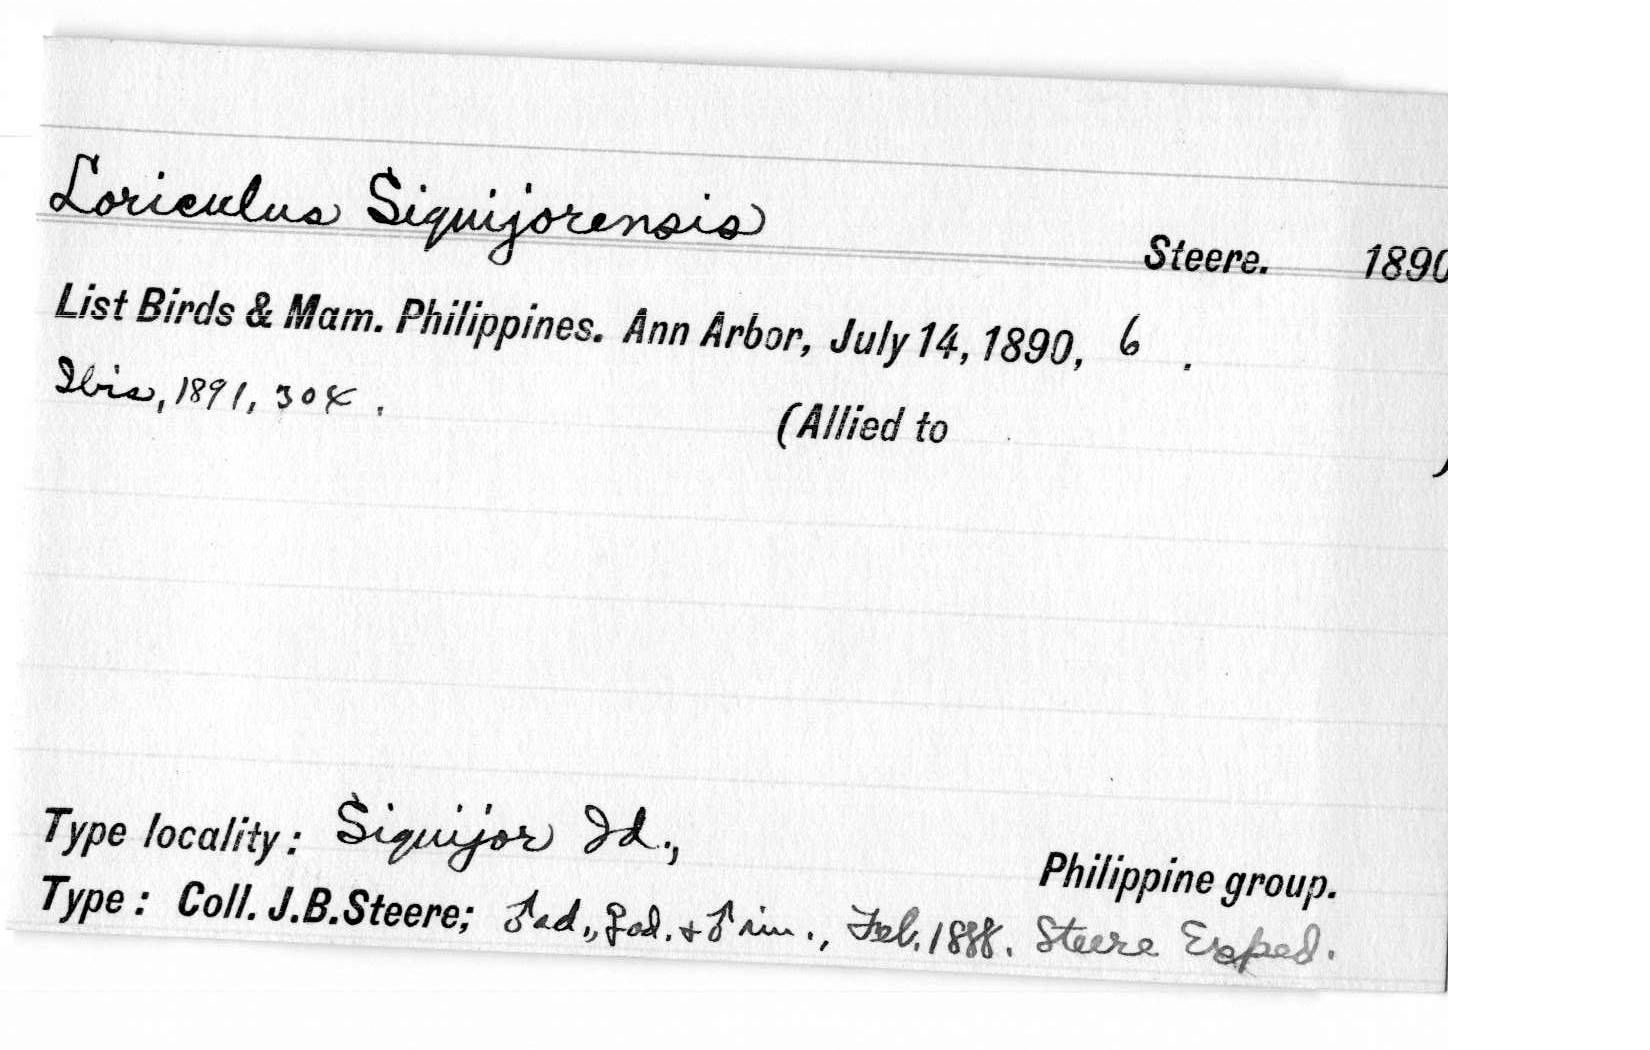 Loriculus Siquijorensis Steere. 1890
List Birds & Mam. Philippines. Ann Arbor, July 14, 1890, 6 .
Ibis, 1891, 304.
(Allied to )
Type locality: Siquijor Id., Philippine group.
Type: Coll. J.B.Steere; ♂ad., ♀ad. + ♂ im., Feb. 1888. Steere Exped.